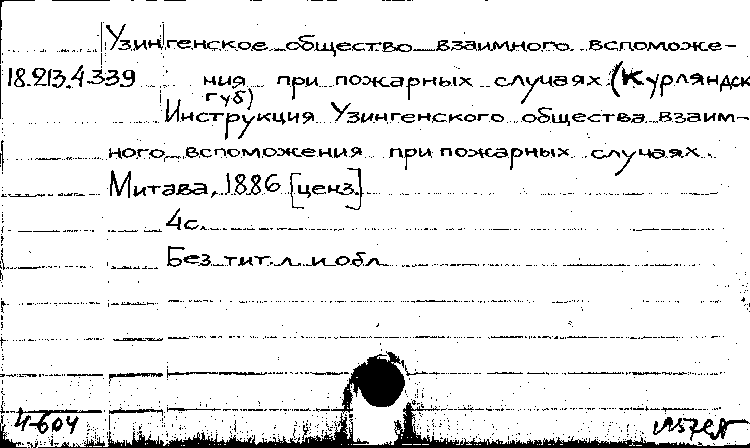 Узингенское общество взаимного вспоможе-
18.213.4.339 ния при пожарных случаях (Курляндск
губ)
Инструкция Узингенского общества взаим-
ного вспоможения при пожарных случаях.
Митава, 1886 [ценз.]
4с.
Без тит. л. и обл
4-604